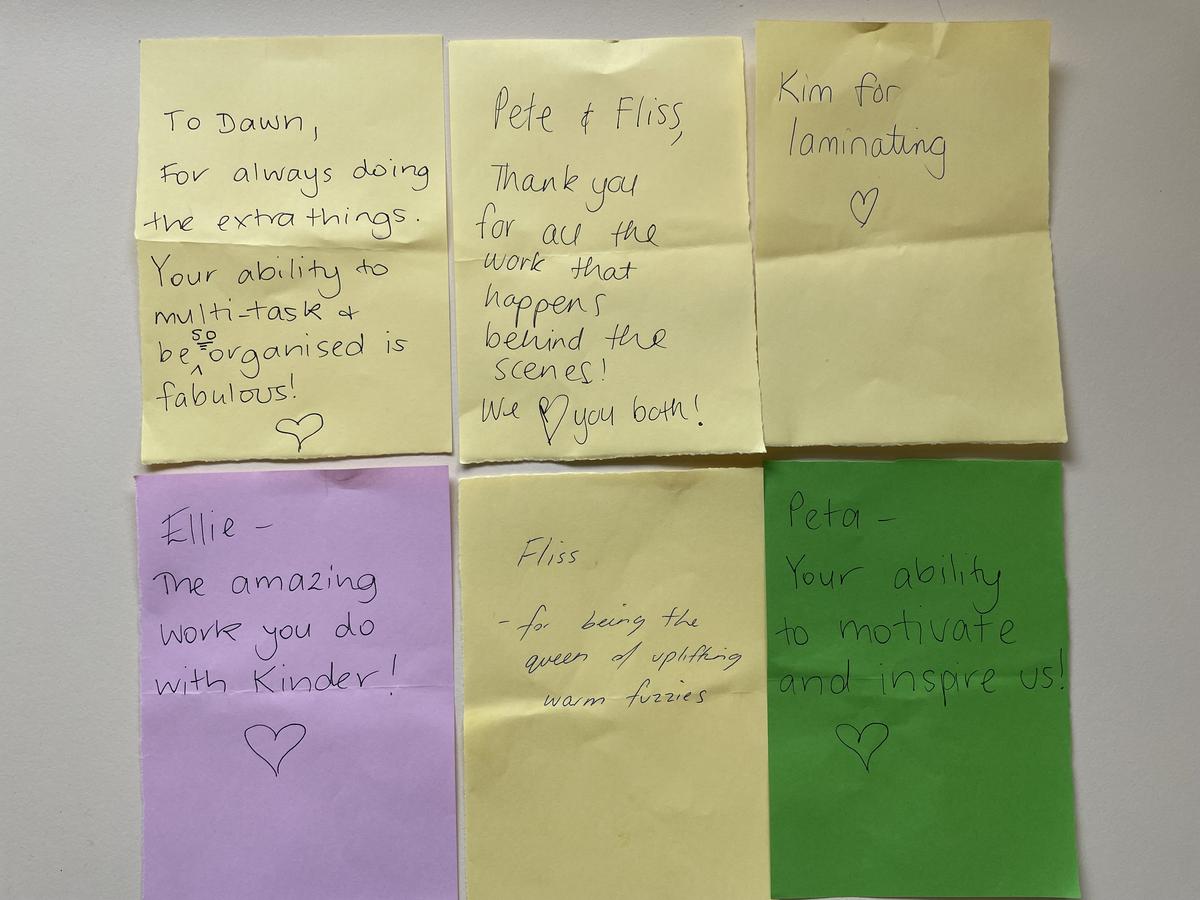 To Dawn,
For always doing
the extra things.
Your ability to
multi-task &
be so organised is
fabulous!
♡
Pete & Fliss,
Thank you
for all the
work that
happens
behind the
scenes!
We ♡ you both!
Kim for
laminating
♡
Ellie -
The amazing
work you do
with Kinder!
♡
Fliss
- for being the
queen of uplifting
warm fuzzies
Peta -
Your ability
to motivate
and inspire us!
♡